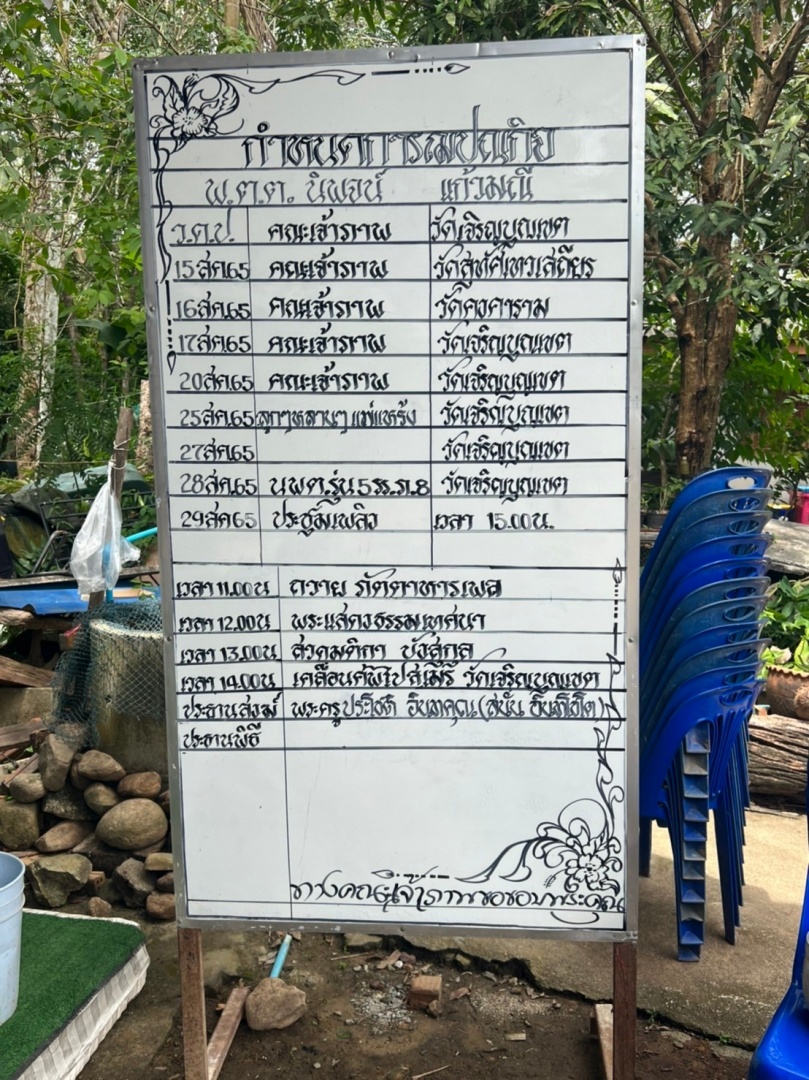 กำหนดการฌาปนกิจ
พ.ต.ต. นิพจน์ แก้วมณี
ว.ด.ป. คณะเจ้าภาพ วัดเจริญบูญเขต
15สค65 คณะเจ้าภาพ วัดสุทัศ์เทวเสถียร
16สค65 คณะเจ้าภาพ วัดคงคาราม
17สค65 คณะเจ้าภาพ วัดเจริญบูญเขต
20สค65 คณะเจ้าภาพ วัดเจริญบูญเขต
25สค65 ลูกๆหลานๆ แพ่แหร้ง วัดเจริญบูญเขต
27สค65 วัดเจริญบูญเขต
28สค65 นพต.รุ่น5 วัดเจริญบูญเขต
29สค65 ประชุมเพลิง เวลา 15.00น.
เวลา 11.00น ถวาย ภัตตาหารเพล
เวลา 12.00น พระแสดงธรรมเทศนา
เวลา 13.00น สวดมติกา บังสุกุล
เวลา 14.00น เคลื่อนศพไปสู่เมรุ วัดเจริญบูญเขต
ประธานสงฆ์ พระครูประโชติ
ประธานพิธี
ทางคณะเจ้าภาพขอขอบพระคุณ